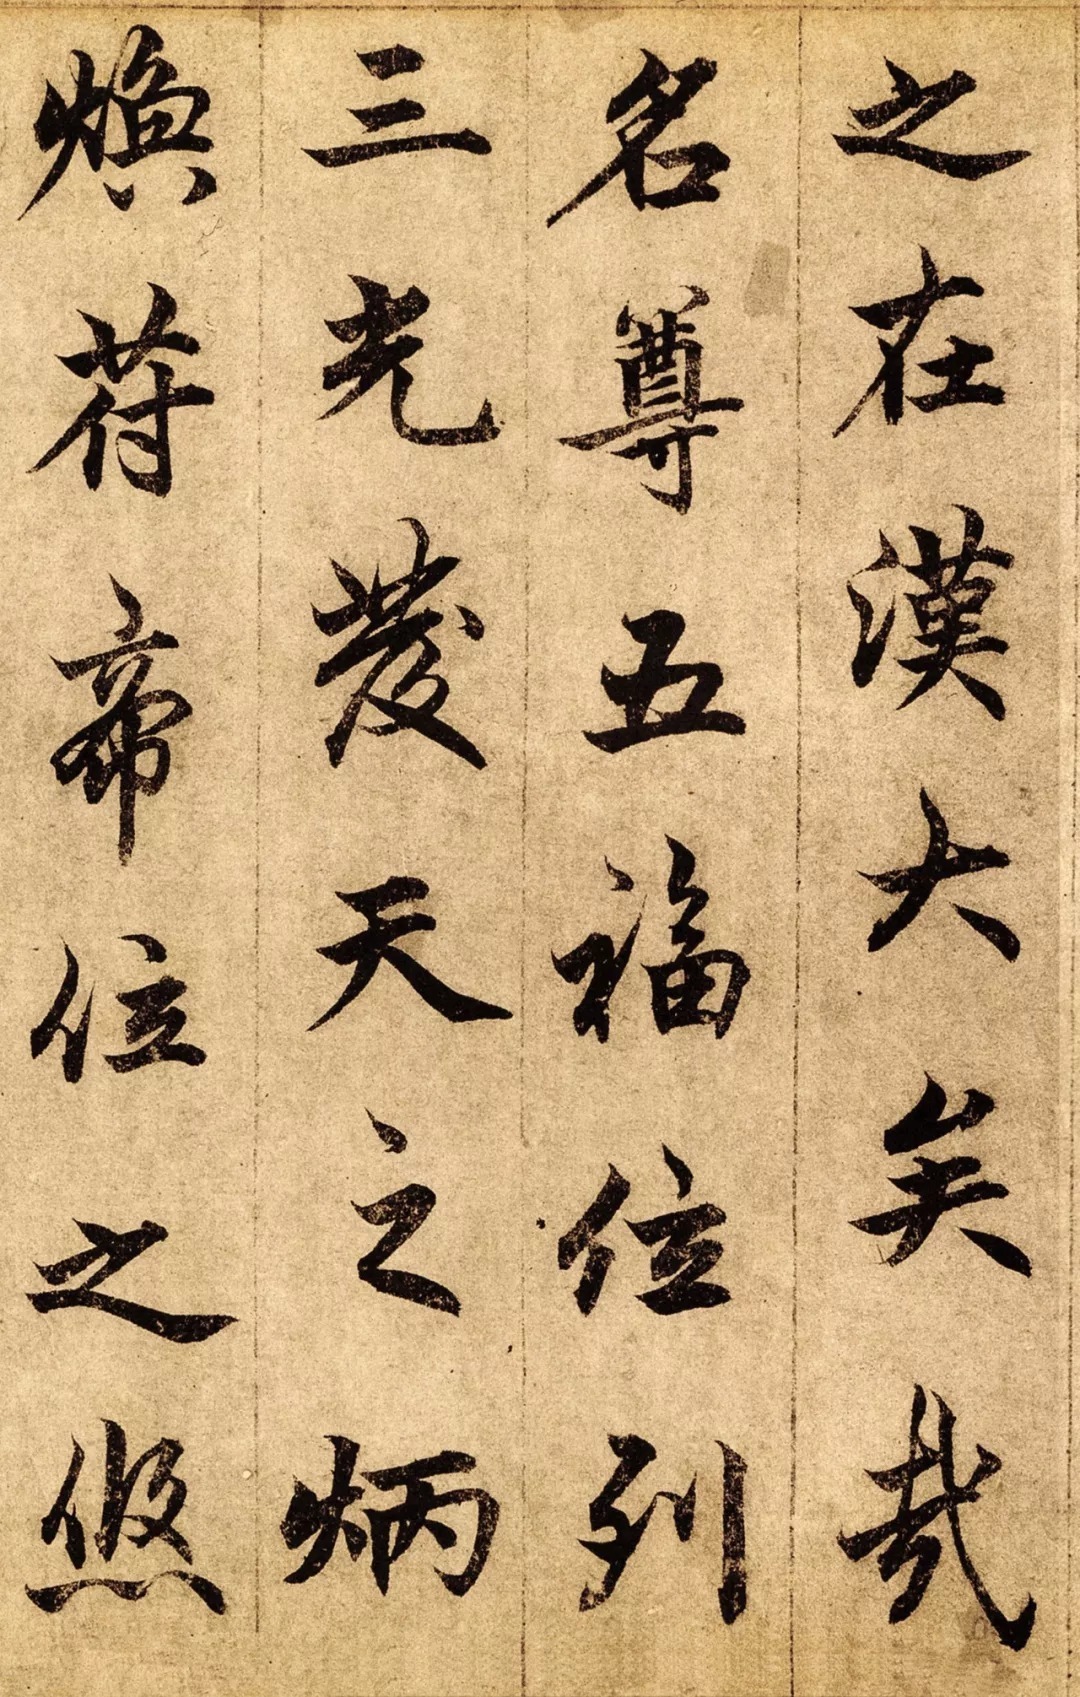 之在漢大矣哉
名尊五福位列
三光發天之炳
煥符帝位之悠